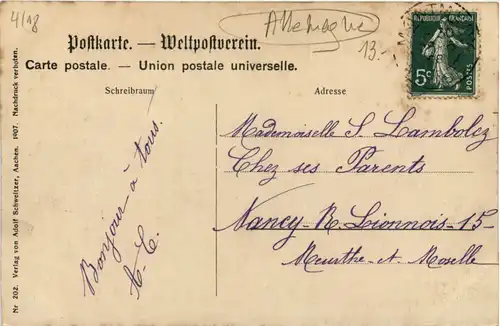 4/18
Allemagne
13.-
Postkarte. — Weltpostverein.
Carte postale. — Union postale universelle.
REPUBLIQUE FRANÇAISE
5c
POSTES
Schreibraum
Adresse
Bonjour à tous.
Mademoiselle S. Lambolez
Chez ses Parents
Nancy - R. Lionnois - 15 -
Meurthe-et-Moselle
Nr 202. Verlag von Adolf Schweitzer, Aachen. 1907. Nachdruck verboten.